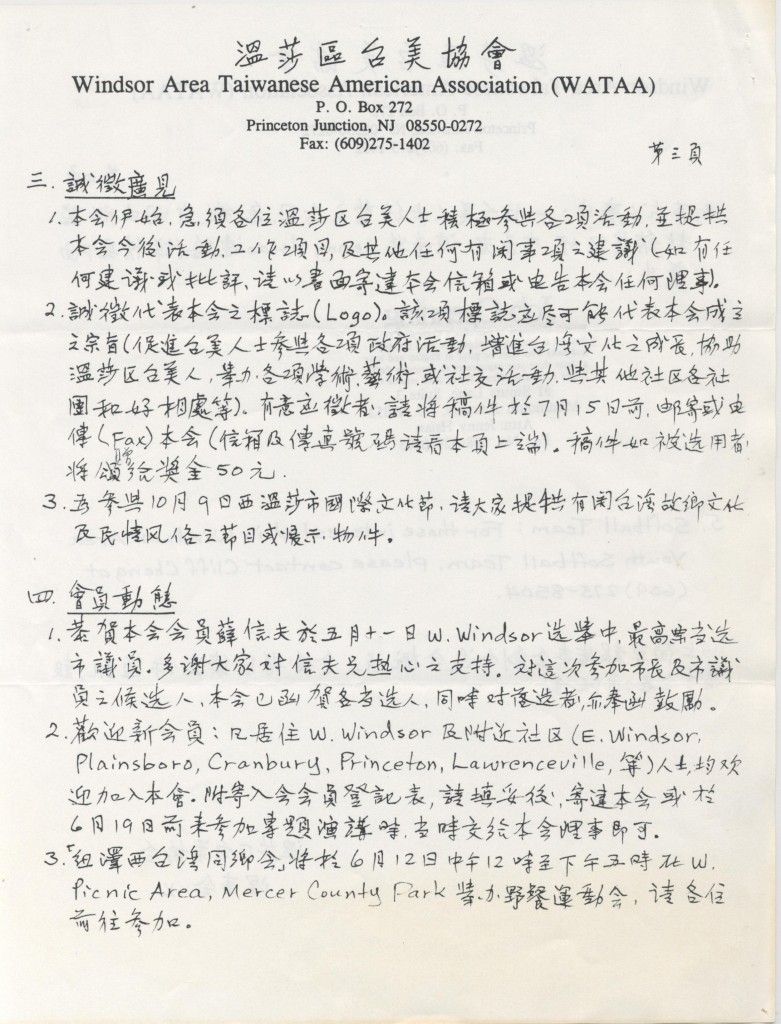 溫莎區台美協會
Windsor Area Taiwanese American Association (WATAA)
P. O. Box 272
Princeton Junction, NJ 08550-0272
Fax: (609)275-1402
第三頁
三. 誠徵廣見
1. 本会伊始, 急須各位溫莎区台美人士積極參與各項活動, 並提供
本会今後活動, 工作項目, 及其他任何有関事項之建議 (如有任
何建議或批評, 请以書面寄達本会信箱或电告本会任何理事)。
2. 誠徵代表本会之標誌 (Logo)。該項標誌应尽可能代表本會成立
之宗旨 (促進台美人士參與各項政府活動, 增進台湾文化之成長, 協助
溫莎区台美人, 举办各項学術, 藝術, 或社交活動, 與其他社区各社
團和好相處等)。有意应徵者, 請將稿件於7月15日前, 邮寄或电
傳 (Fax) 本会 (信箱及傳真號碼請看本頁上端)。稿件如被选用者
将頒贈给奬金50元.
3. 為參與10月9日西溫莎市國際文化節, 请大家提供有関台湾故鄉文化
及民情风俗之節目或展示物件。
四. 會員動態
1. 恭賀本会会員薛信夫於五月十一日W. Windsor选举中, 最高票当选
市議員。多谢大家对信夫兄热心之支持。对這次參加市長及市議
員之候选人, 本会已函賀各当选人, 同時对落选者, 亦奉函鼓勵。
2. 歡迎新会員: 凡居住W. Windsor及附近社区 (E. Windsor,
Plainsboro, Cranbury, Princeton, Lawrenceville, 等) 人士, 均欢
迎加入本會。附寄入会会員登記表, 請填妥後, 寄達本会或於
6月19日前来參加專題演講時, 当時交給本会理事即可。
3. 「紐澤西台湾同鄉会」将於6月12日中午12時至下午五時在W.
Picnic Area, Mercer County Park 举办野餐運動会, 请各位
前往参加。